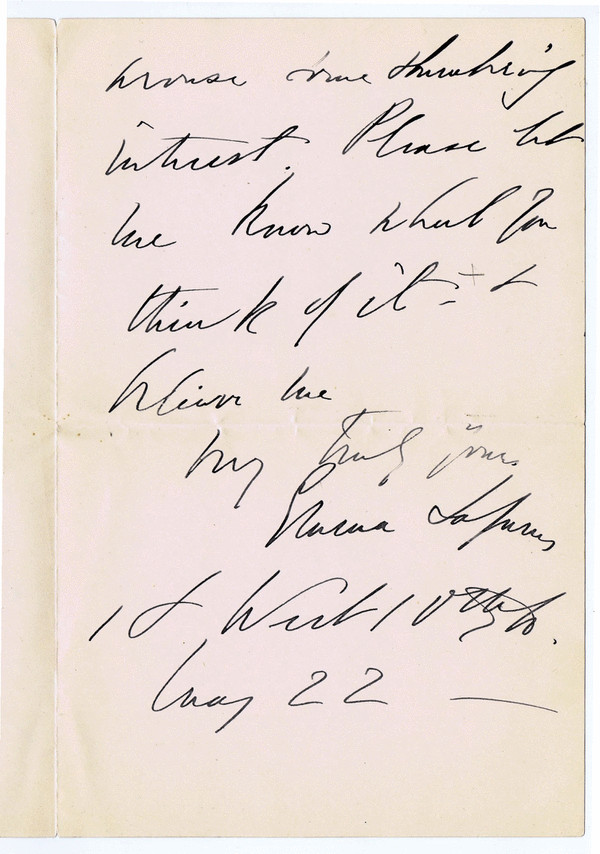 arouse some slumbering
interest. Please let
me know what you
think of it - &
believe me
Very truly yours
Emma Lazarus
18 West 10th St.
May 22 —